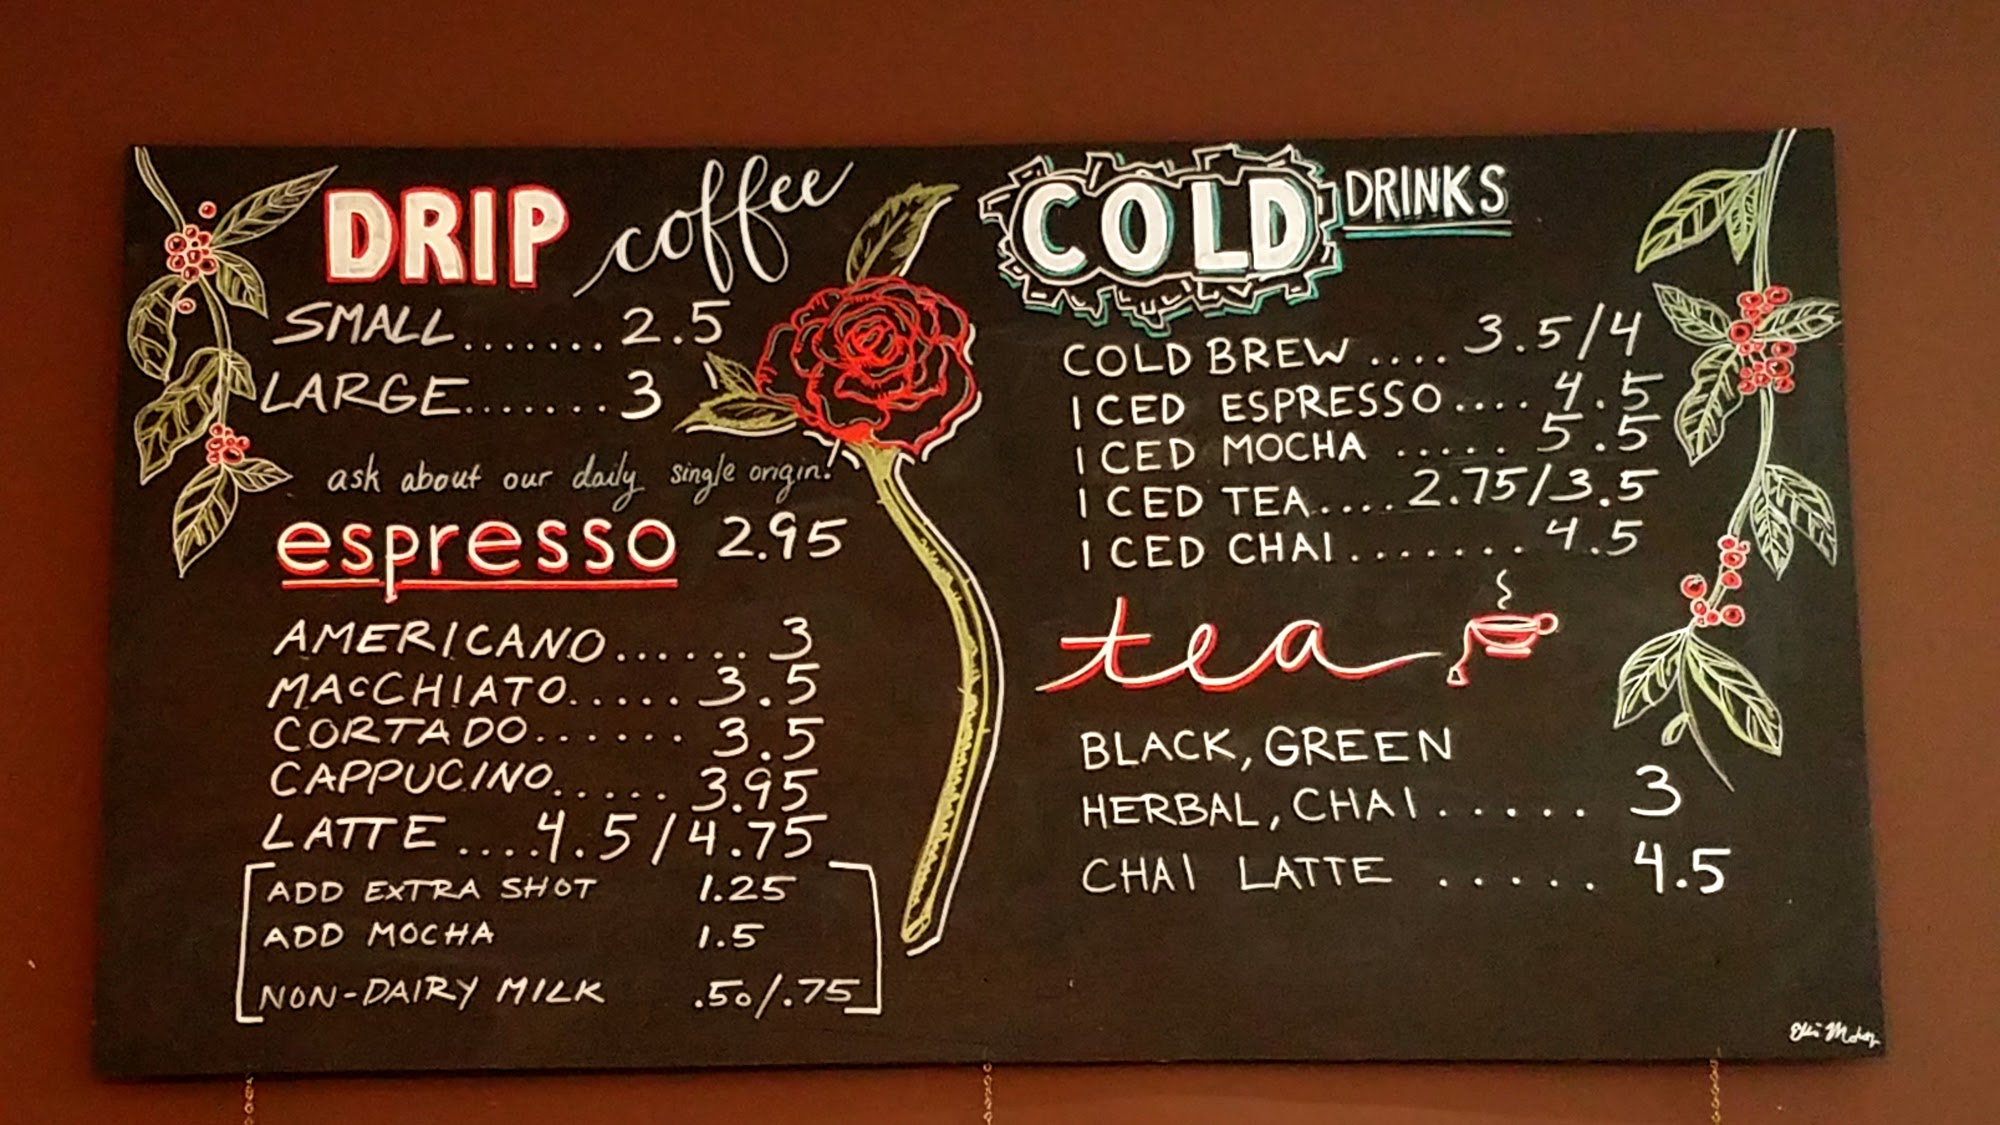 DRIP coffee
SMALL....... 2.5
LARGE....... 3
ask about our daily single origin!
espresso 2.95
AMERICANO...... 3
MAcCHIATO..... 3.5
CORTADO...... 3.5
CAPPUCINO..... 3.95
LATTE ....4.5/4.75
ADD EXTRA SHOT 1.25
ADD MOCHA 1.5
NON-DAIRY MILK .50/.75
COLD DRINKS
COLD BREW .... 3.5/4
ICED ESPRESSO.... 4.5
ICED MOCHA ..... 5.5
ICED TEA.... 2.75/3.5
ICED CHAI....... 4.5
tea
BLACK, GREEN
HERBAL, CHAI..... 3
CHAI LATTE ..... 4.5